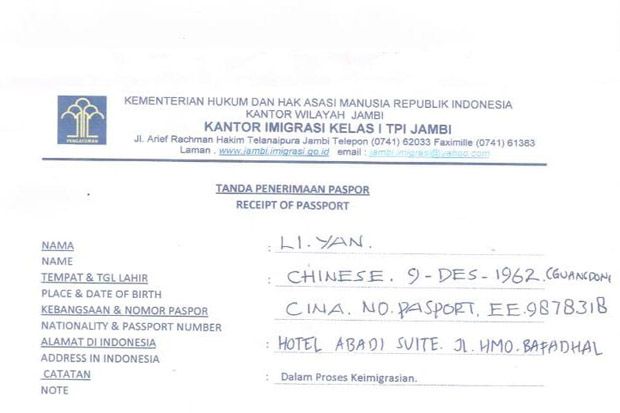 KEMENTERIAN HUKUM DAN HAK ASASI MANUSIA REPUBLIK INDONESIA
KANTOR WILAYAH JAMBI
KANTOR IMIGRASI KELAS I TPI JAMBI
Jl. Arief Rachman Hakim Telanaipura Jambi Telepon (0741) 62033 Faximille (0741) 61383
Laman . www.jambi.imigrasi.go.id email : jambi.imigrasi@yahoo.com
PENGAYOMAN
TANDA PENERIMAAN PASPOR
RECEIPT OF PASSPORT
NAMA : LI. YAN.
NAME
TEMPAT & TGL LAHIR : CHINESE. 9-DES-1962. (GUANGDONG
PLACE & DATE OF BIRTH
KEBANGSAAN & NOMOR PASPOR CINA. NO. PASPORT. EE.9878318
NATIONALITY & PASSPORT NUMBER
ALAMAT DI INDONESIA : HOTEL ABADI SUITE. Jl. HMO. BAFADHAL
ADDRESS IN INDONESIA
CATATAN : Dalam Proses Keimigrasian.
NOTE